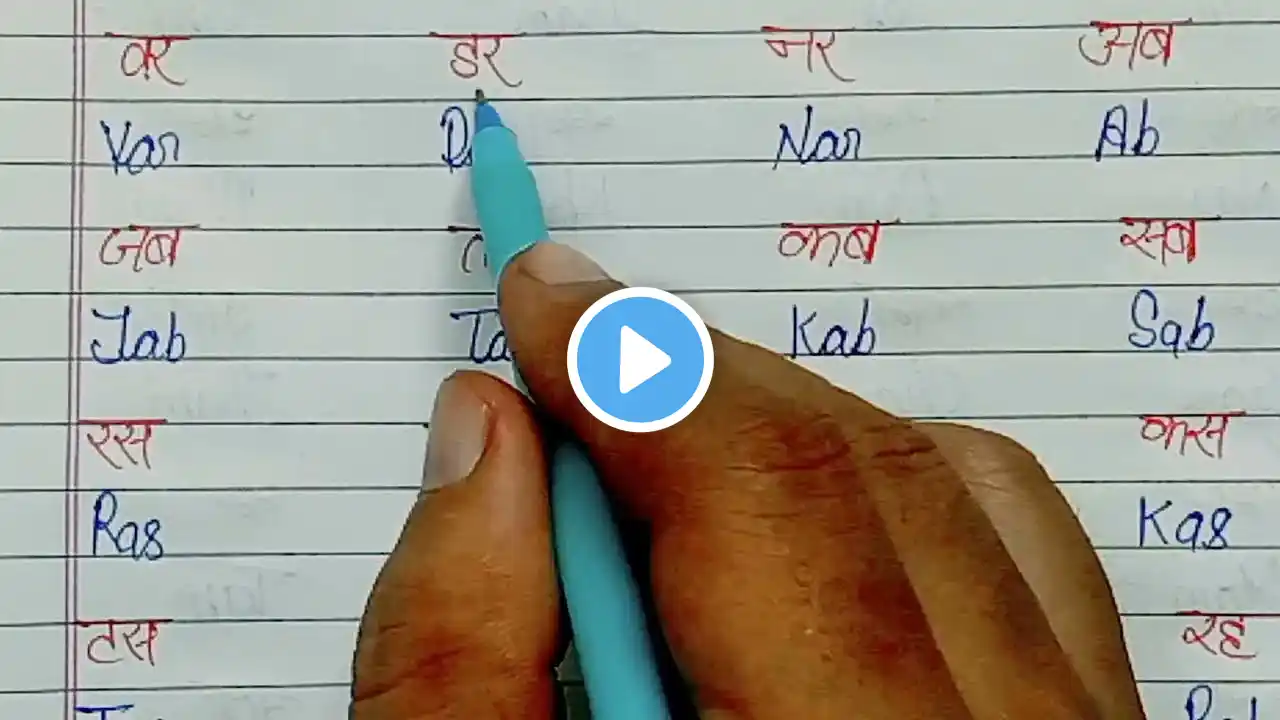 वर डर नर अब
Var Nar Ab
जब कब सब
Jab Kab Sab
रस कस
Ras Kas
टस रह